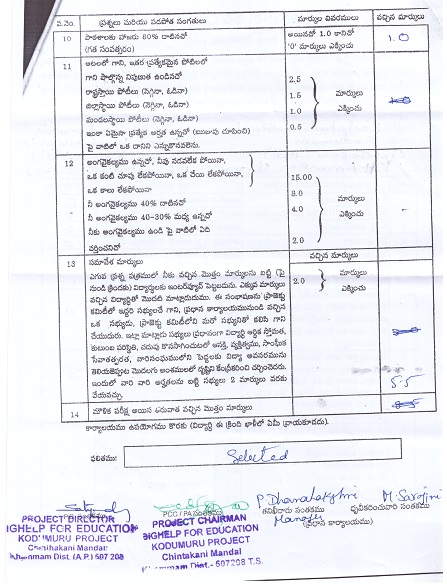 వ.నెం. ప్రశ్నలు మరియు పరపోత సంగతులు మార్కుల వివరములు వచ్చిన మార్కులు
10 పాఠశాలకు హాజరు 80% దాటినచో అయినచో 1.0 కానిచో 1.0
(గత సంవత్సరం) '0' మార్కులు ఎక్కించు
11 ఆటలలో గాని, ఇతర ప్రత్యేకమైన పోటీలలో
గాని పాల్గొన్న నిపుణుత ఉండినచో 2.5
రాష్ట్రస్థాయి పోటీలు (నెగ్గినా, ఓడినా) 1.5 మార్కులు
జిల్లాస్థాయి పోటీలు (నెగ్గినా, ఓడినా) 1.0 ఎక్కించు
మండలస్థాయి పోటీలు (నెగ్గినా, ఓడినా) 0.5
ఇంకా ఏమైనా ప్రత్యేక అర్హత ఉన్నచో (ఋజువు చూపించి)
పై వాటిలో ఒక దానిని ఎన్నుకొనవలెను.
12 అంగవైకల్యము ఉన్నచో, నీవు నడవలేక పోయినా,
ఒక కంటి చూపు లేకపోయినా, ఒక చేయి లేకపోయినా, 15.00
ఒక కాలు లేకపోయినా 8.0
నీ అంగవైకల్యము 40% దాటినచో 4.0 మార్కులు
నీ అంగవైకల్యము 40-30% మధ్య ఉన్నచో ఎక్కించు
నీకు అంగవైకల్యము ఉండి పై వాటిలో ఏది 2.0
వర్తించనిచో
13 సమావేశ మార్కులు వచ్చిన మార్కులు
ఎగువ ప్రశ్న పత్రములో నీకు వచ్చిన మొత్తం మార్కులను బట్టి (పై 2.0 మార్కులు
నుండి క్రిందకు) విద్యార్థులకు ఇంటర్వ్యూకి పెట్టబడును. ఎక్కువ మార్కులు ఎక్కించు
వచ్చిన విద్యార్థితో మొదట మాట్లాడుదుము. ఈ సంభాషణను ప్రాజెక్టు
కమిటీలో ఇద్దరి సభ్యులచే గాని, ప్రధాన కార్యాలయమునుండి వచ్చిన
ఒక సభ్యుడు, ప్రాజెక్టు కమిటీలోని మరో సభ్యునితో కలిసి గాని
చేయుదురు. ఇట్లా మాట్లాడు సభ్యులు ప్రధానంగా విద్యార్థి ఆర్థిక స్తోమత,
కుటుంబ పరిస్థితి, చదువు కొనసాగించుటలో ఆసక్తి, వ్యక్తిత్వము, సాంఘిక
సేవాతత్పరత, వారి పెద్దలకు విద్యా అవసరమును
తెలియజెప్పుట మొదలగు అంశములలో దృష్టిని కేంద్రీకరించి చర్చించెదరు.
ఇందులో వారి వారి అర్హతలను బట్టి సభ్యులు 2 మార్కులు వరకు 5.5
వేయవచ్చు.
14 మౌఖిక పరీక్ష అయిన తరువాత వచ్చిన మొత్తం మార్కులు
కార్యాలయము ఉపయోగము కొరకు (విద్యార్థి ఈ క్రింది ఖాళీలో ఏమీ వ్రాయకూడదు).
ఫలితము: Selected
P. Dhanalakshmi M. Sarojini
PCC / PA సంతకము తనిఖీదారు సంతకము ధృవీకరించువారి సంతకము
Manager (ప్రధాన కార్యాలయము)
PROJECT DIRECTOR PROJECT CHAIRMAN
BIGHELP FOR EDUCATION BIGHELP FOR EDUCATION
KODUMURU PROJECT KODUMURU PROJECT
Chintakani Mandal Chintakani Mandal
Khammam Dist. (A.P.) 507 208 Khammam Dist. - 507208 T.S.